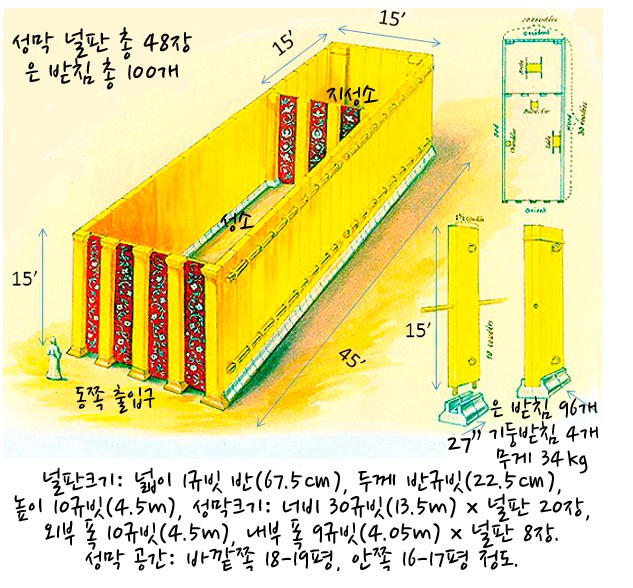 성막 널판 총 48장
은 받침 총 100개
15'
15'
지성소
성소
15'
동쪽 출입구
45'
10 coudées
Occident
Nord
30 coudées
Orient
1½ coudée
15'
10 coudées
은 받침 96개
27” 기둥받침 4개
무게 34kg
널판크기: 넓이 1규빗 반(67.5cm), 두께 반규빗(22.5cm),
높이 10규빗(4.5m), 성막크기: 너비 30규빗(13.5m) x 널판 20장,
외부 폭 10규빗(4.5m), 내부 폭 9규빗(4.05m) x 널판 8장.
성막 공간: 바깥쪽 18-19평, 안쪽 16-17평 정도.